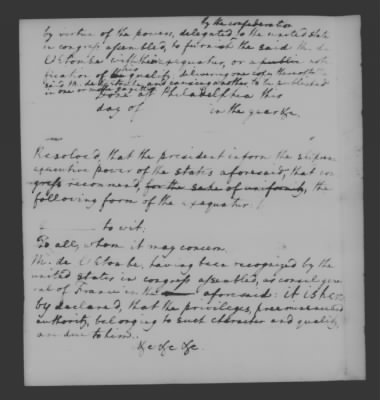 by the confederation
by virtue of the powers, delegated to the united states
in congress assembled, to furnish the said Mr. de
L'Etombe with the exequatur, or a public noti-
fication of his quality, delivering one copy thereof to
said Mr. de L'Etombe, and causing another to be published
in one or more gazettes.
Done at Philadelphia this
day of in the year &c.
Resolved, that the president inform the supreme
executive power of the states aforesaid, that con-
gress recommend, for the sake of uniformity, the
following form of the exequatur:
to wit:
To all, whom it may concern.
Mr. de L'Etombe, having been recognized by the
united states in congress assembled, as consul gene-
ral of France in the aforesaid: it is here-
by declared, that the privileges, preeminence and
authority, belonging to such character and quality,
are due to him.
&c &c &c.